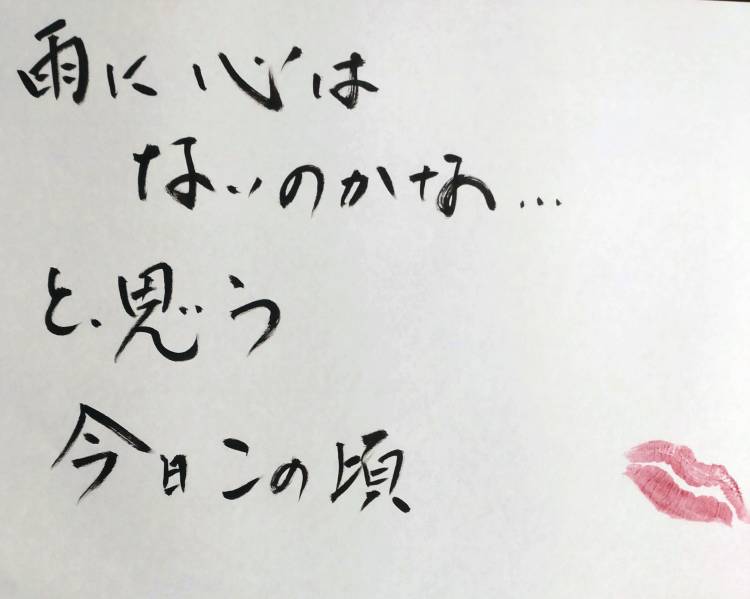 雨に心は
ないのかな…
と、思う
今日この頃